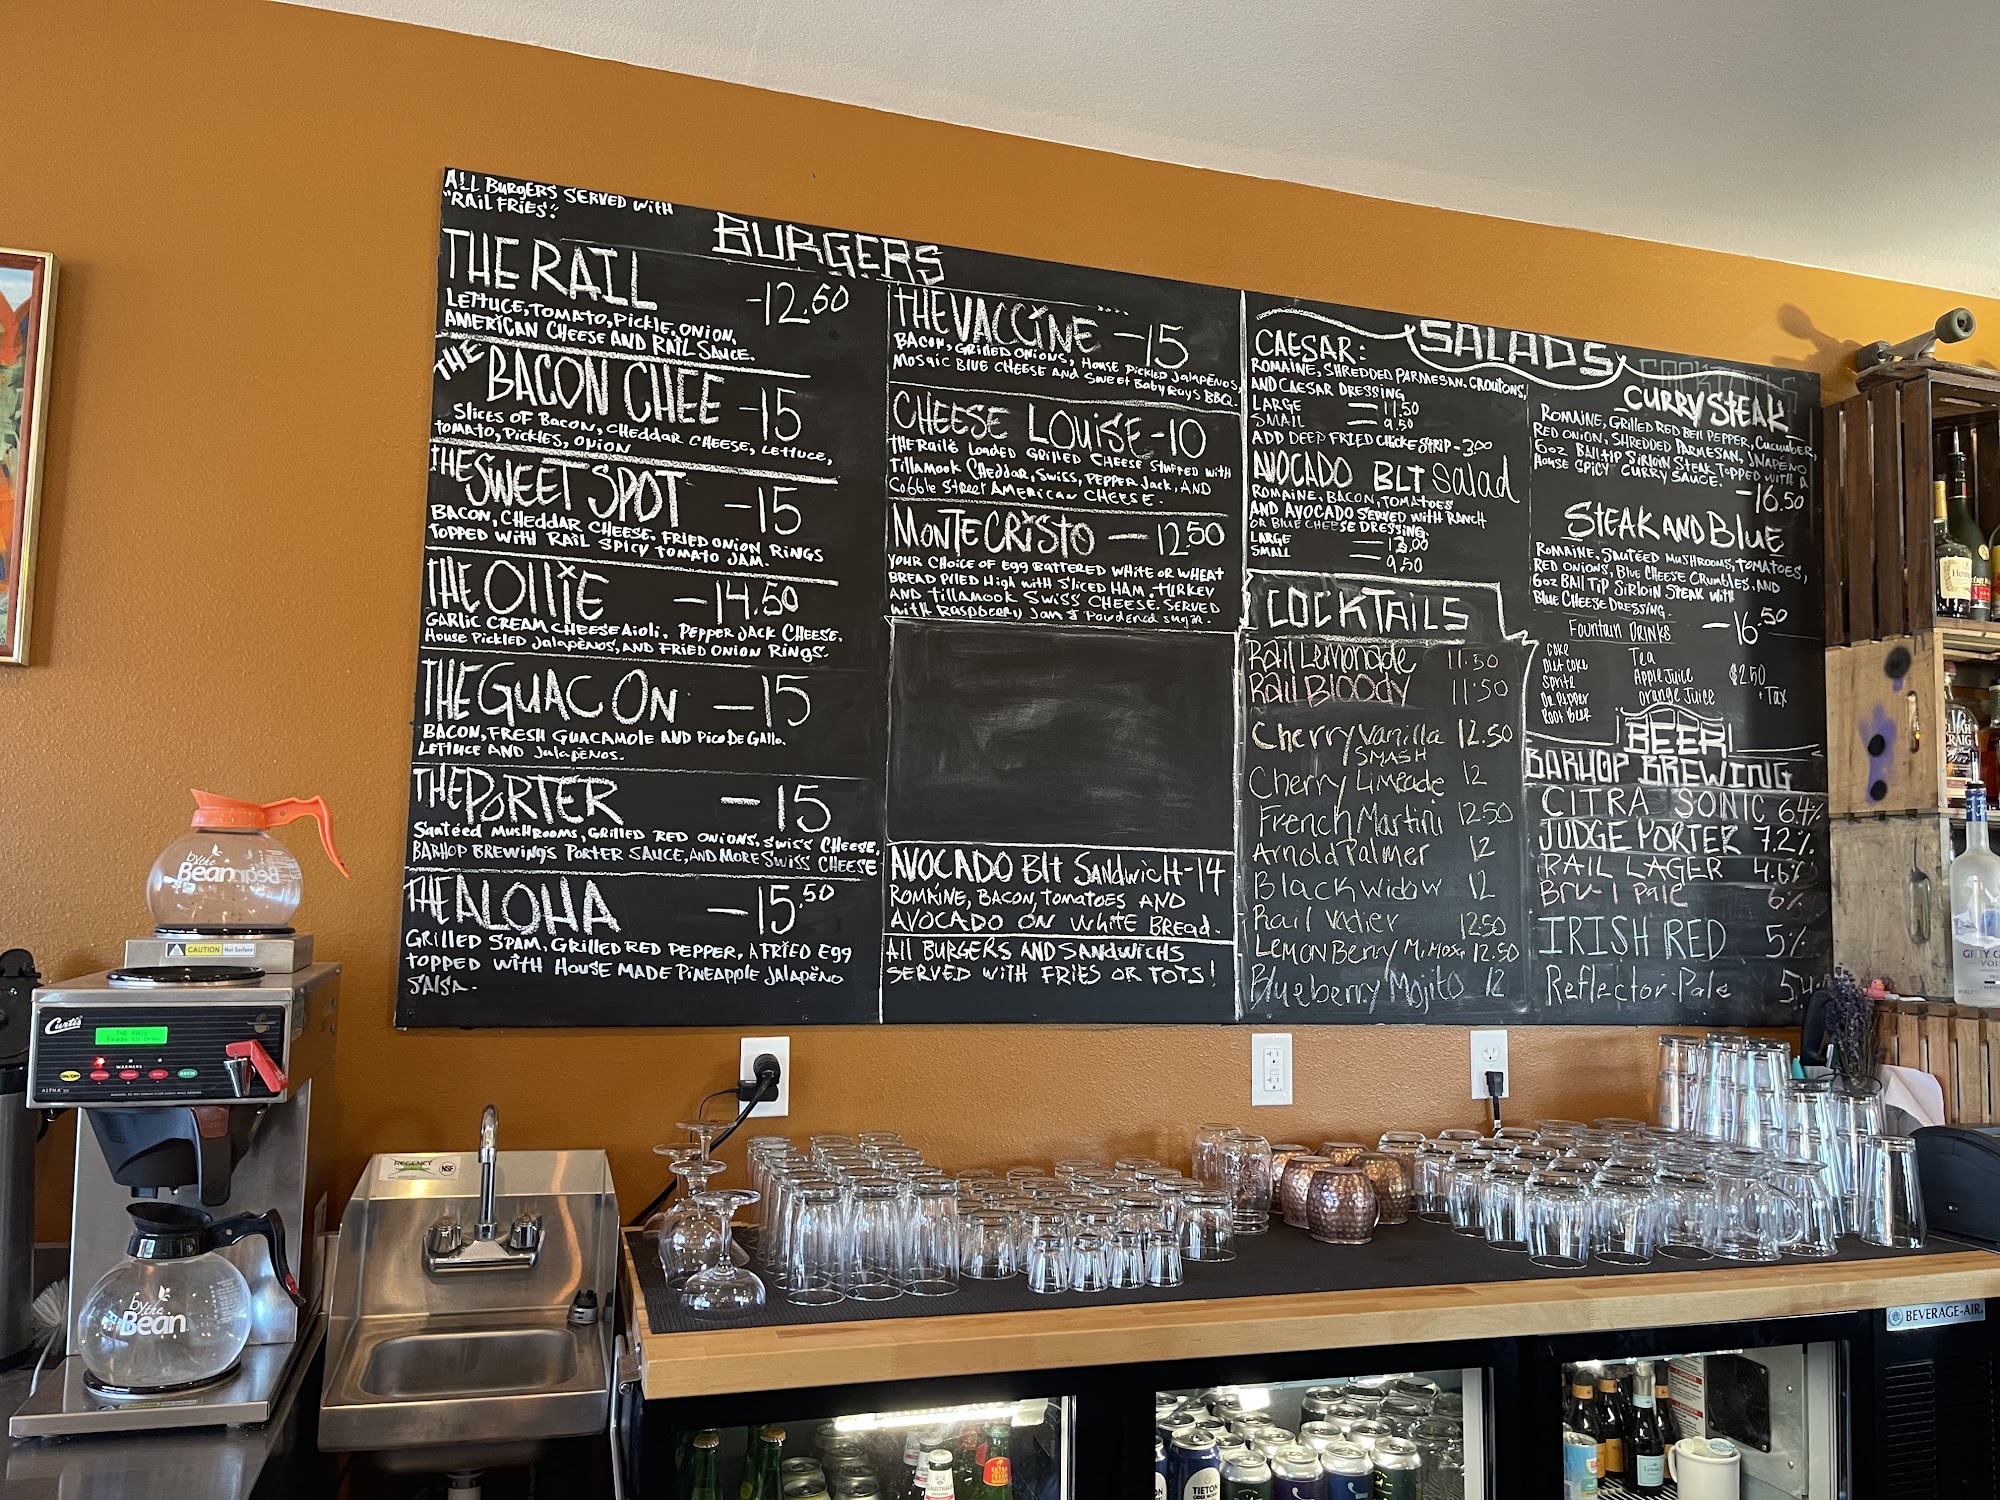 ALL BURGERS SERVED WITH
"RAIL FRIES".
BURGERS
THE RAIL -12.50
LETTUCE, TOMATO, PICKLE, ONION,
AMERICAN CHEESE AND RAIL SAUCE.
THE BACON CHEE -15
SLICES OF BACON, CHEDDAR CHEESE, LETTUCE,
TOMATO, PICKLES, ONION
THE SWEET SPOT -15
BACON, CHEDDAR CHEESE. FRIED ONION RINGS
TOPPED WITH RAIL SPICY TOMATO JAM.
THE OLLIE -14.50
GARLIC CREAM CHEESE AIOLI, PEPPER JACK CHEESE.
HOUSE PICKLED JALAPEÑOS, AND FRIED ONION RINGS.
THE GUAC ON -15
BACON, FRESH GUACAMOLE AND PICO DE GALLO.
LETTUCE AND JALAPEÑOS.
THE PORTER -15
SAUTÉED MUSHROOMS, GRILLED RED ONIONS, SWISS CHEESE,
BARHOP BREWING'S PORTER SAUCE, AND MORE SWISS CHEESE
THE ALOHA -15.50
GRILLED SPAM, GRILLED RED PEPPER, A FRIED EGG
TOPPED WITH HOUSE MADE PINEAPPLE JALAPEÑO
SALSA.
THE VACCINE -15
BACON, GRILLED ONIONS, HOUSE PICKLED JALAPEÑOS,
MOSAIC BLUE CHEESE AND SWEET BABY RAYS BBQ.
CHEESE LOUISE -10
THE RAIL'S LOADED GRILLED CHEESE STUFFED WITH
TILLAMOOK CHEDDAR, SWISS, PEPPER JACK, AND
COBBLE STREET AMERICAN CHEESE.
MONTE CRISTO - 12.50
YOUR CHOICE OF EGG BATTERED WHITE OR WHEAT
BREAD PILED HIGH WITH SLICED HAM, TURKEY
AND TILLAMOOK SWISS CHEESE. SERVED
WITH RASPBERRY JAM & POWDERED SUGAR.
AVOCADO BLT SANDWICH -14
ROMAINE, BACON, TOMATOES AND
AVOCADO ON WHITE BREAD.
All BURGERS AND SANDWICHS
SERVED WITH FRIES OR TOTS!
SALADS
CAESAR:
ROMAINE, SHREDDED PARMESAN. CROUTONS,
AND CAESAR DRESSING
LARGE — 11.50
SMALL — 9.50
ADD DEEP FRIED CHICKE STRIP - 3.00
AVOCADO BLT Salad
ROMAINE, BACON, TOMATOES
AND AVOCADO SERVED WITH RANCH
OR BLUE CHEESE DRESSING.
LARGE — 12.00
SMALL — 9.50
CURRY STEAK
ROMAINE, GRILLED RED BELL PEPPER, CUCUMBER,
RED ONION, SHREDDED PARMESAN, JALAPEÑO
6oz BALL TIP SIRLOIN STEAK TOPPED WITH A
HOUSE SPICY CURRY SAUCE.
-16.50
STEAK AND BLUE
ROMAINE, SAUTÉED MUSHROOMS, TOMATOES,
RED ONIONS, BLUE CHEESE CRUMBLES, AND
6oz BALL TIP SIRLOIN STEAK WITH
BLUE CHEESE DRESSING.
-16.50
COCKTAILS
Rail Lemonade 11.50
Rail Bloody 11.50
Cherry Vanilla 12.50
SMASH
Cherry Limeade 12
French Martini 12.50
Arnold Palmer 12
Black widow 12
Rail 12.50
Lemon Berry Mimosa 12.50
Blueberry Mojito 12
Fountain Drinks
Coke
Diet Coke
Sprite
Dr. Pepper
Root Beer
Tea
Apple Juice
orange Juice
$2.50
+ Tax
BEER
BARHOP BREWING
CITRA SONIC 6.4%
JUDGE PORTER 7.2%
RAIL LAGER 4.6%
6%
IRISH RED 5%
Reflector Pale
by the Bean
CAUTION Hot Surface
Curtis
THE RAIL
Ready to Brew
WARMERS
ON/OFF
BREW
ALPHA
by the Bean
REGENCY
NSF
BEVERAGE-AIR
TIETON
CIDER WORKS